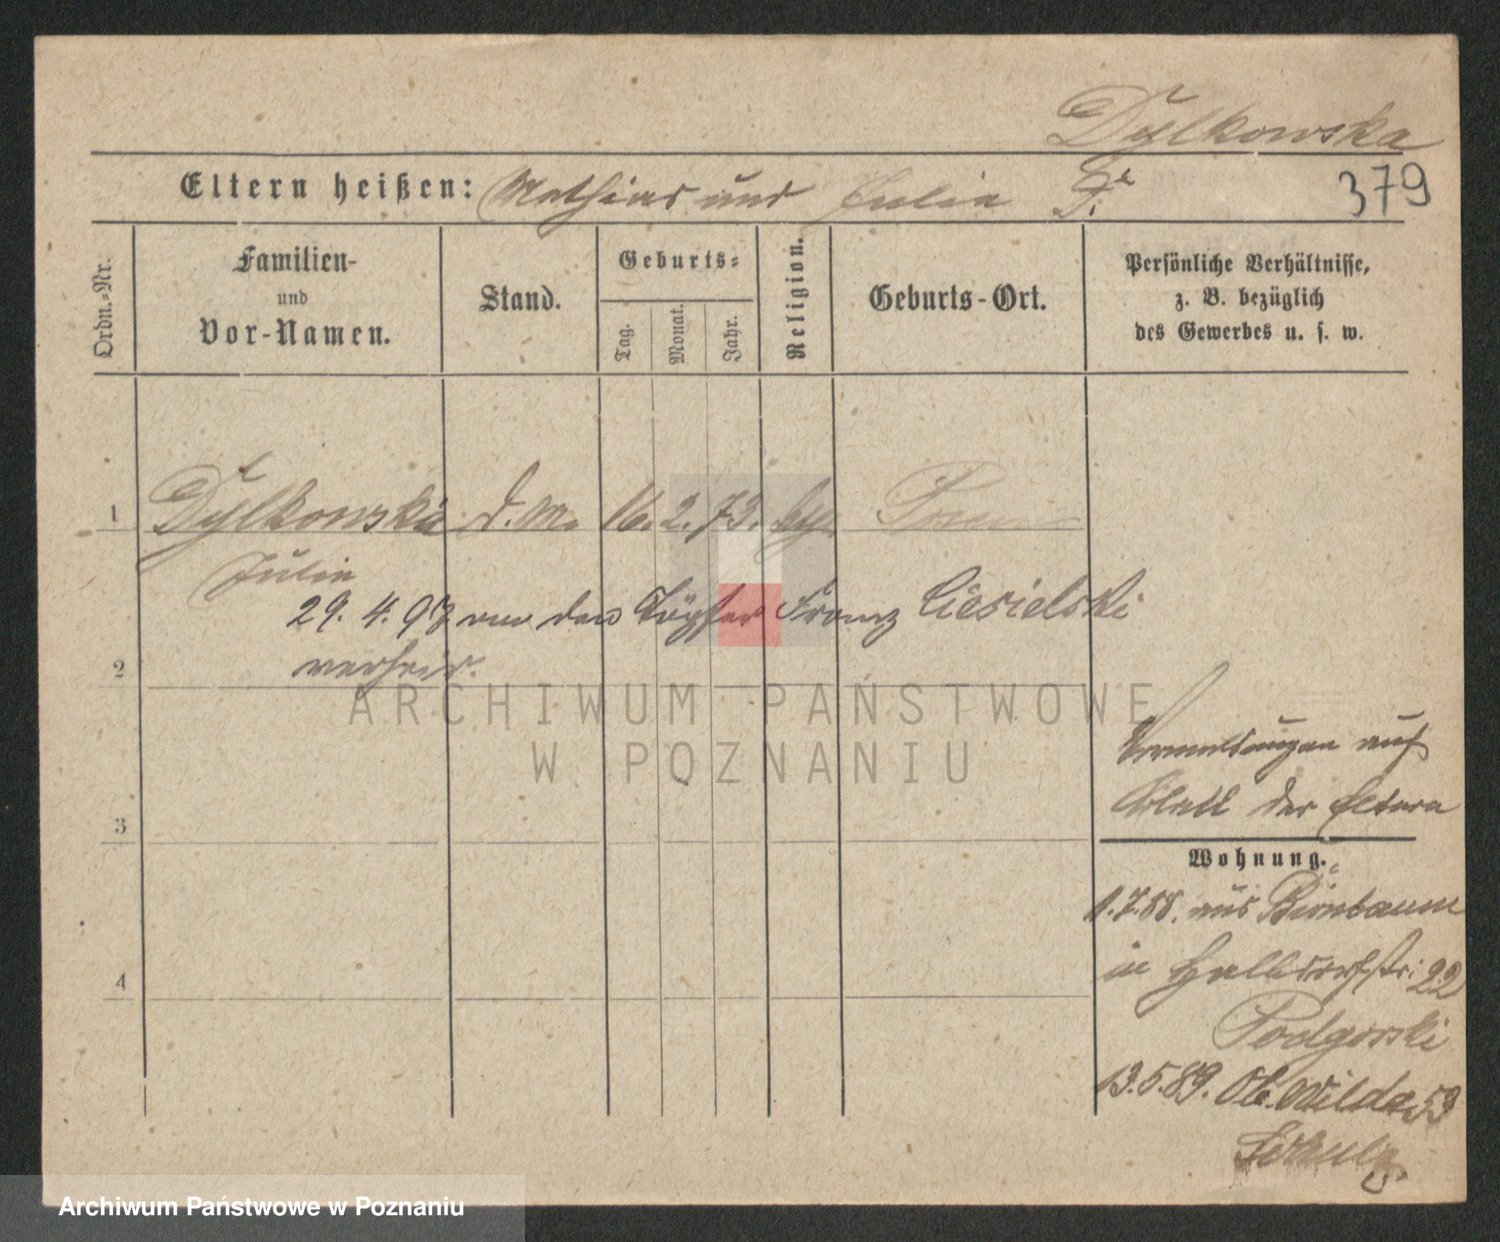 Dylkowska
Eltern heißen: Mathias und Julia D.
379
Ordn.-Nr.
Familien-
und
Vor-Namen.
Stand.
Geburts-
Tag.
Monat.
Jahr.
Religion.
Geburts-Ort.
Persönliche Verhältnisse,
z. B. bezüglich
des Gewerbes u. s. w.
1 Dylkowska d. M. 16. 2. 73. Posen
Julia
29. 4. 93 an den Töpfer Franz Ciesielski
2 verheir.
ARCHIWUM PAŃSTWOWE
W POZNANIU
auf
3 Blatt der Eltern
Wohnung.
1.7.88. aus Birnbaum
4 in Halbdorfstr. 22
Podgorski
13.5.89. Ob. Wilda 53
Schulz
Archiwum Państwowe w Poznaniu